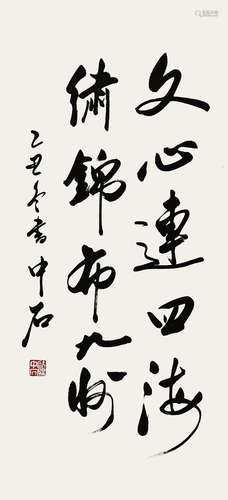 文心連四海
繡錦布九州
乙丑冬書中石